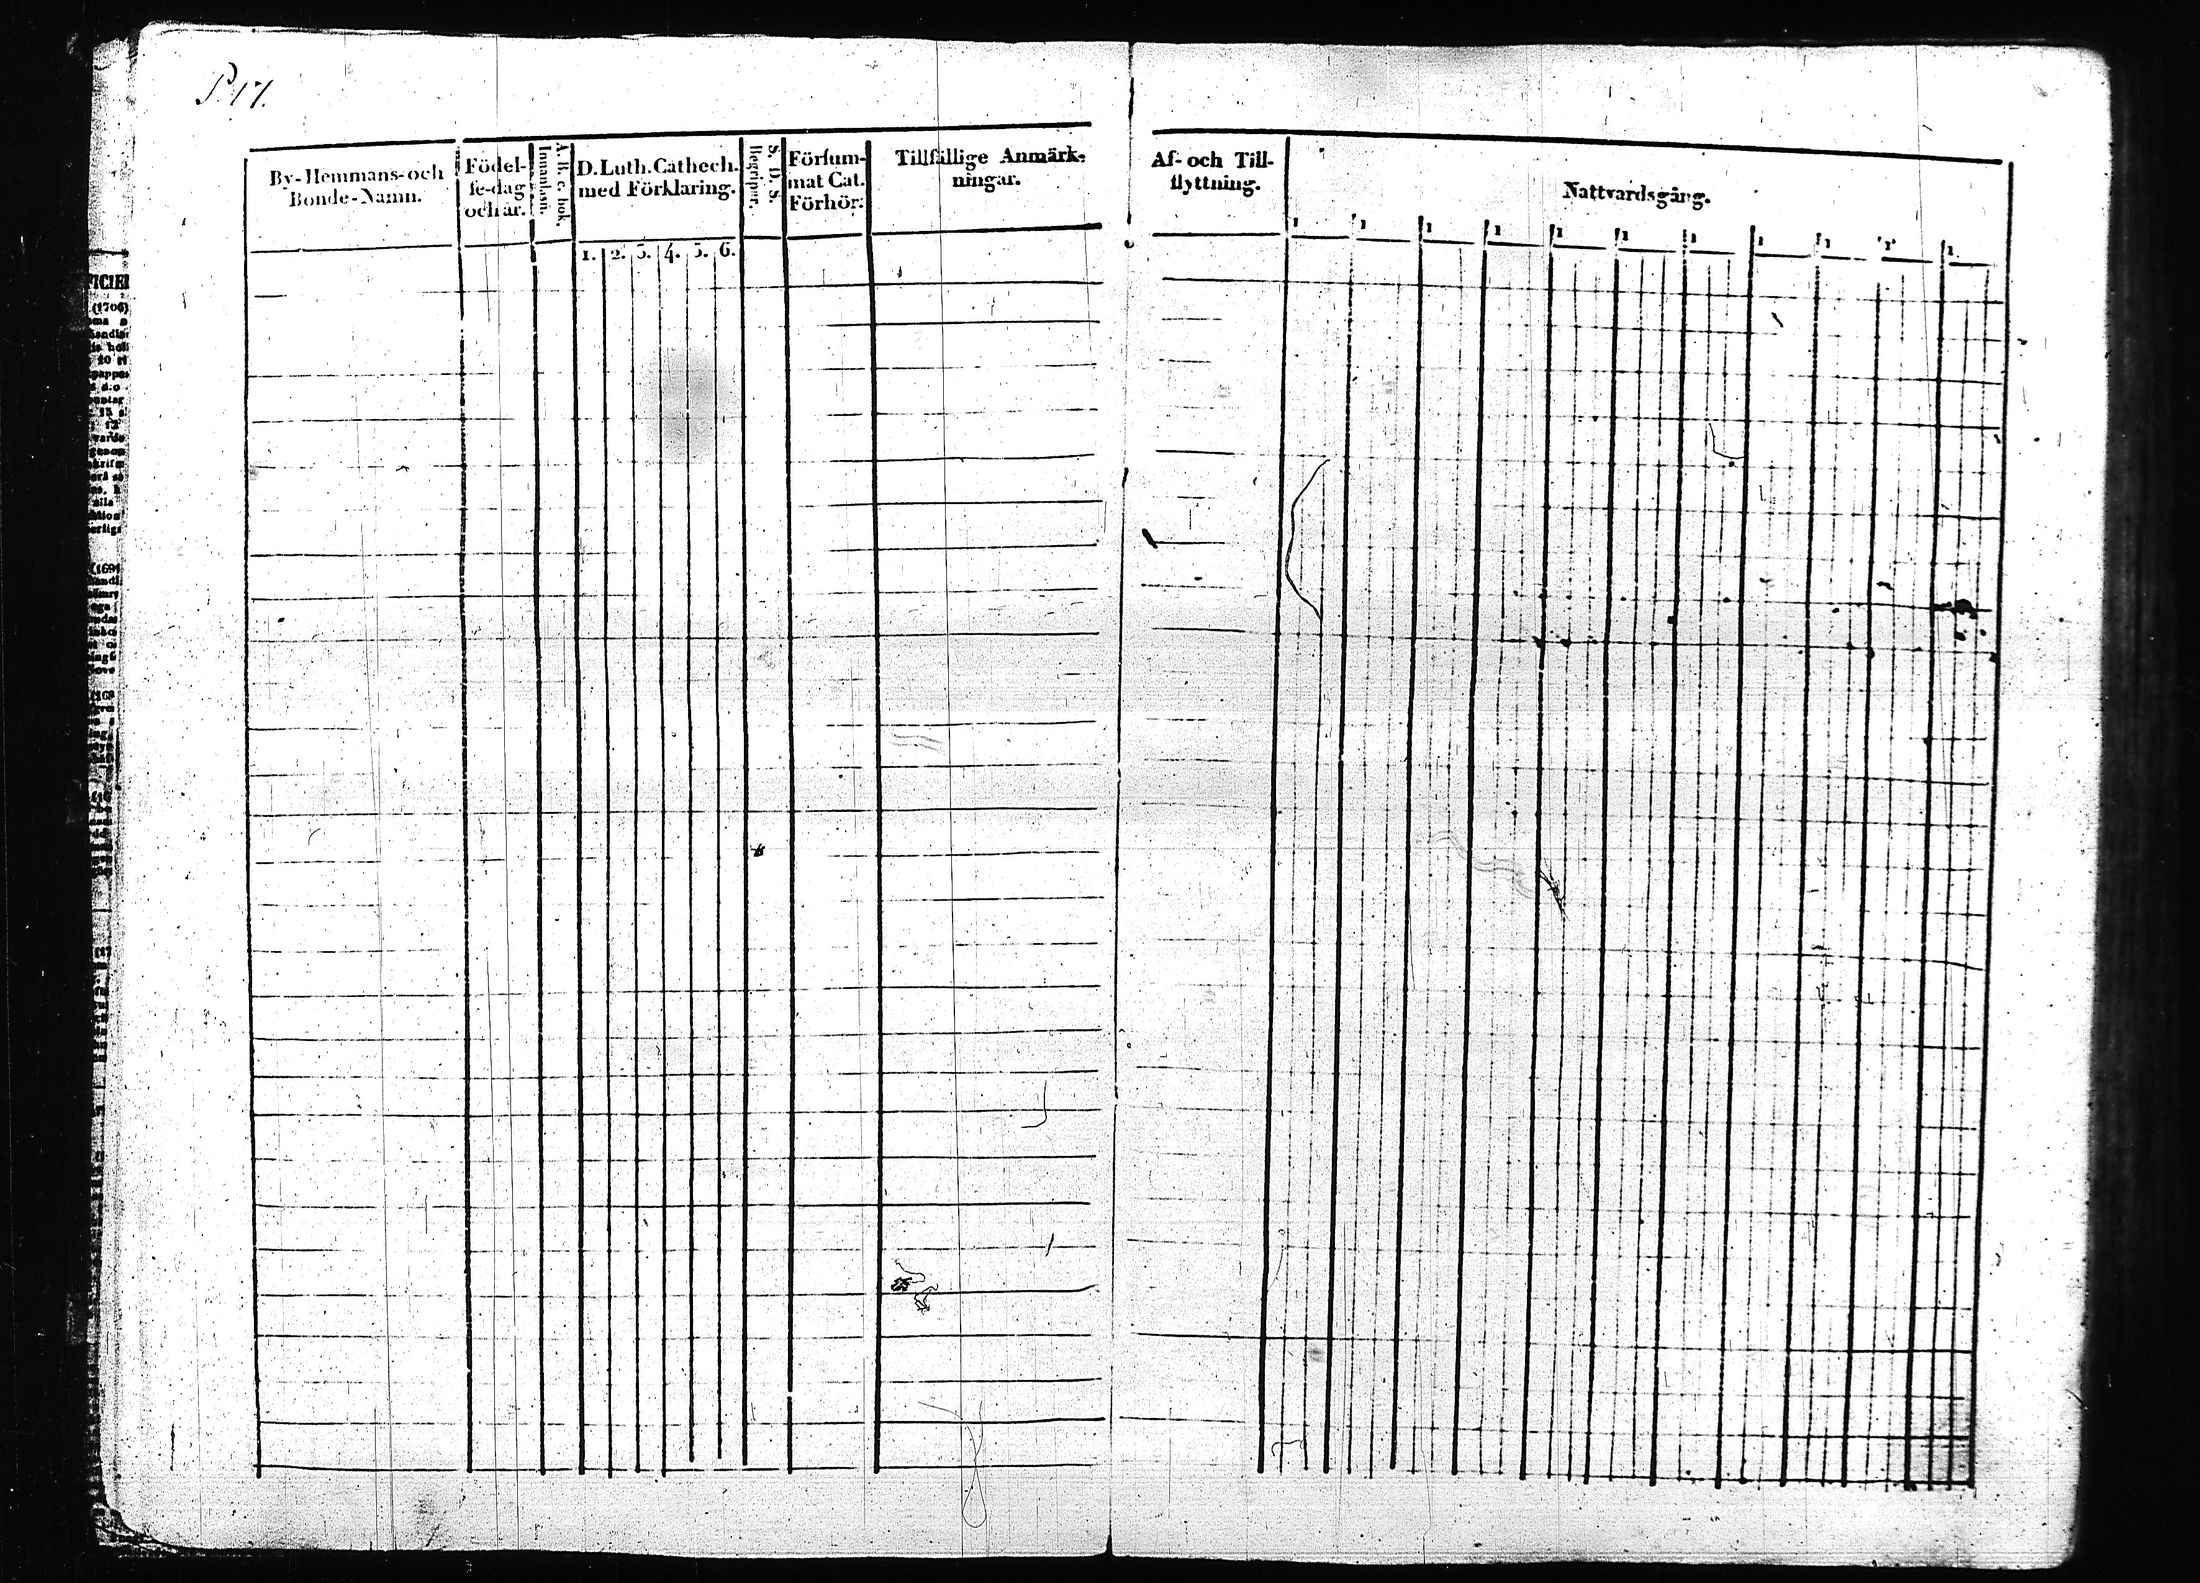 P. 17.
By-Hemmans-och
Bonde-Namn.
Födel-
se-dag
och år.
A. B. c. bok.
Innanläsn.
D. Luth. Cathech.
med Förklaring.
1. 2. 3. 4. 5. 6.
S. D. S.
Begriper.
Försum-
mat Cat.
Förhör.
Tillfällige Anmärk-
ningar.
Af- och Till-
flyttning.
Nattvardsgång.
1 1 1 1 1 1 1 1 1 1 1
(1706)